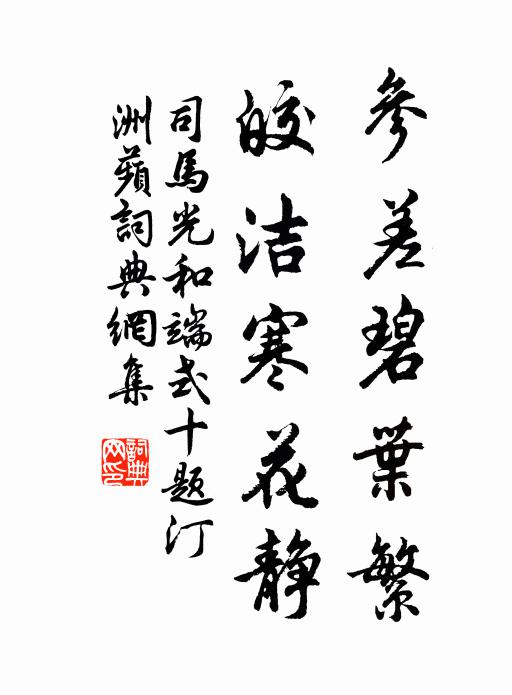 參差碧葉繁
皎洁寒花靜
司馬光和端式十題汀
洲蘋詞典網集
詞典
网印